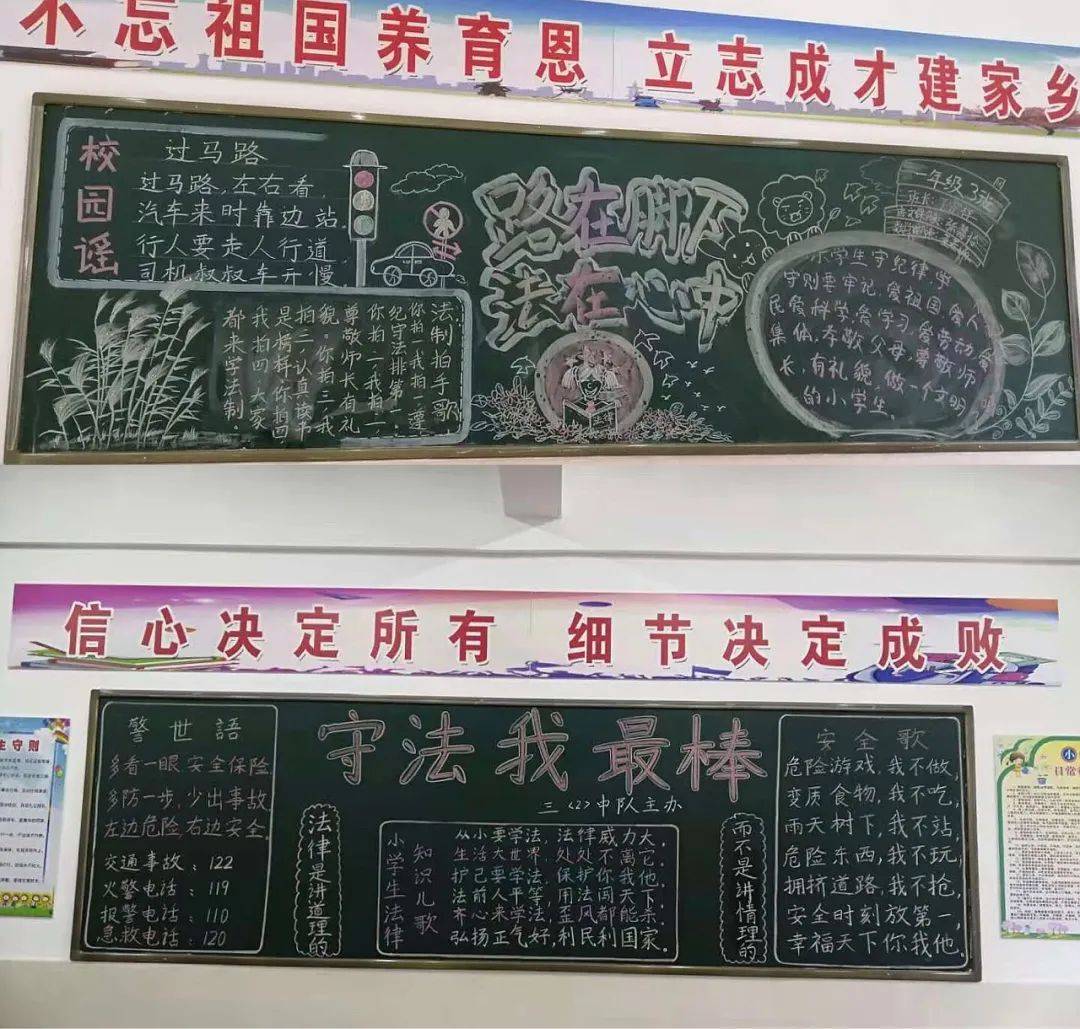 不忘祖国养育恩 立志成才建家乡
校园谣
过马路
过马路,左右看,
汽车来时靠边站,
行人要走人行道,
司机叔叔车开慢,
法制拍手歌
你拍一我拍一,遵
纪守法排第一,
你拍二,我拍二,
尊敬师长有礼
貌,你拍三,我
拍三,认真读书
是榜样,你拍四
我拍四,大家
都来学法制.
路在脚下
法在心中
一年级3班
班长:
小学生守纪律,学
守则要牢记,爱祖国爱人
民爱科学,爱学习,爱劳动爱
集体,孝敬父母,尊敬师
长,有礼貌,做一个文明
的小学生。
信心决定所有 细节决定成败
生守则
警世語
多看一眼,安全保险
多防一步,少出事故
左边危险右边安全
交通事故:122
火警电话:119
报警电话:110
急救电话:120
守法我最棒
三〈2〉中队主办
法律是讲道理的
小学生法律
知识儿歌
从小要学法,法律威力大,
生活大世界,处处不离它,
护己要学法,保护你我他,
法前人平等,用法闯天下,
齐心来学法,歪风都能杀,
弘扬正气好,利民利国家.
而不是讲情理的
安全歌
危险游戏,我不做,
变质食物,我不吃,
雨天树下,我不站,
危险东西,我不玩,
拥挤道路,我不抢,
安全时刻放第一,
幸福天下你我他.
小
日常